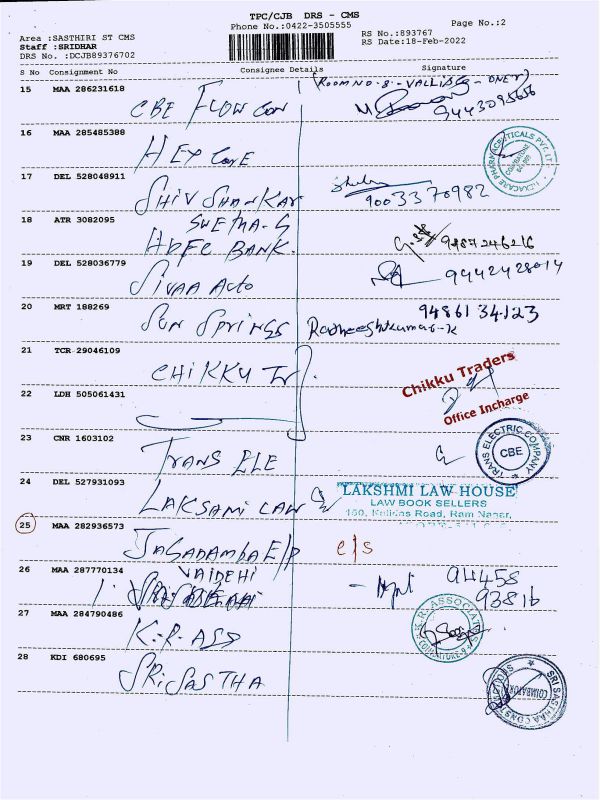 TPC/CJB DRS - CMS
Phone No.:0422-3505555
Page No.:2
Area :SASTHIRI ST CMS
Staff :SRIDHAR
DRS No. :DCJB89376702
RS No.:893767
RS Date:18-Feb-2022
S No Consignment No Consignee Details Signature
15 MAA 286231618
CBE FLOW CON
(ROOM NO-8 - VALLI
9443095656
16 MAA 285485388
HEY CARE
17 DEL 528048911
SHIV SHANKAR
9003370982
18 ATR 3082095
SWETHA-S
HDFC BANK.
9487246216
19 DEL 528036779
SIVAA Auto
9442428014
20 MRT 188269
SUN SPRINGS
Ratheeshkumar-k
9486134123
21 TCR 29046109
CHIKKU Tr.
Chikku Traders
Office Incharge
22 LDH 505061431
23 CNR 1603102
TRANS ELE
TRANS ELECTRIC COMPANY
CBE
24 DEL 527931093
LAKSAMI LAW
LAKSHMI LAW HOUSE
LAW BOOK SELLERS
160, Kalidas Road, Ram Nagar,
25 MAA 282936573
JAGADAMBA E/P
c/s
26 MAA 287770134
VAIDEHI
94458
93816
27 MAA 284790486
K.R. ASS
K.R. ASSOCIATES
28 KDI 680695
SRI SASTHA
SRI SASTHAA CONSTRUCTIONS
COIMBATORE